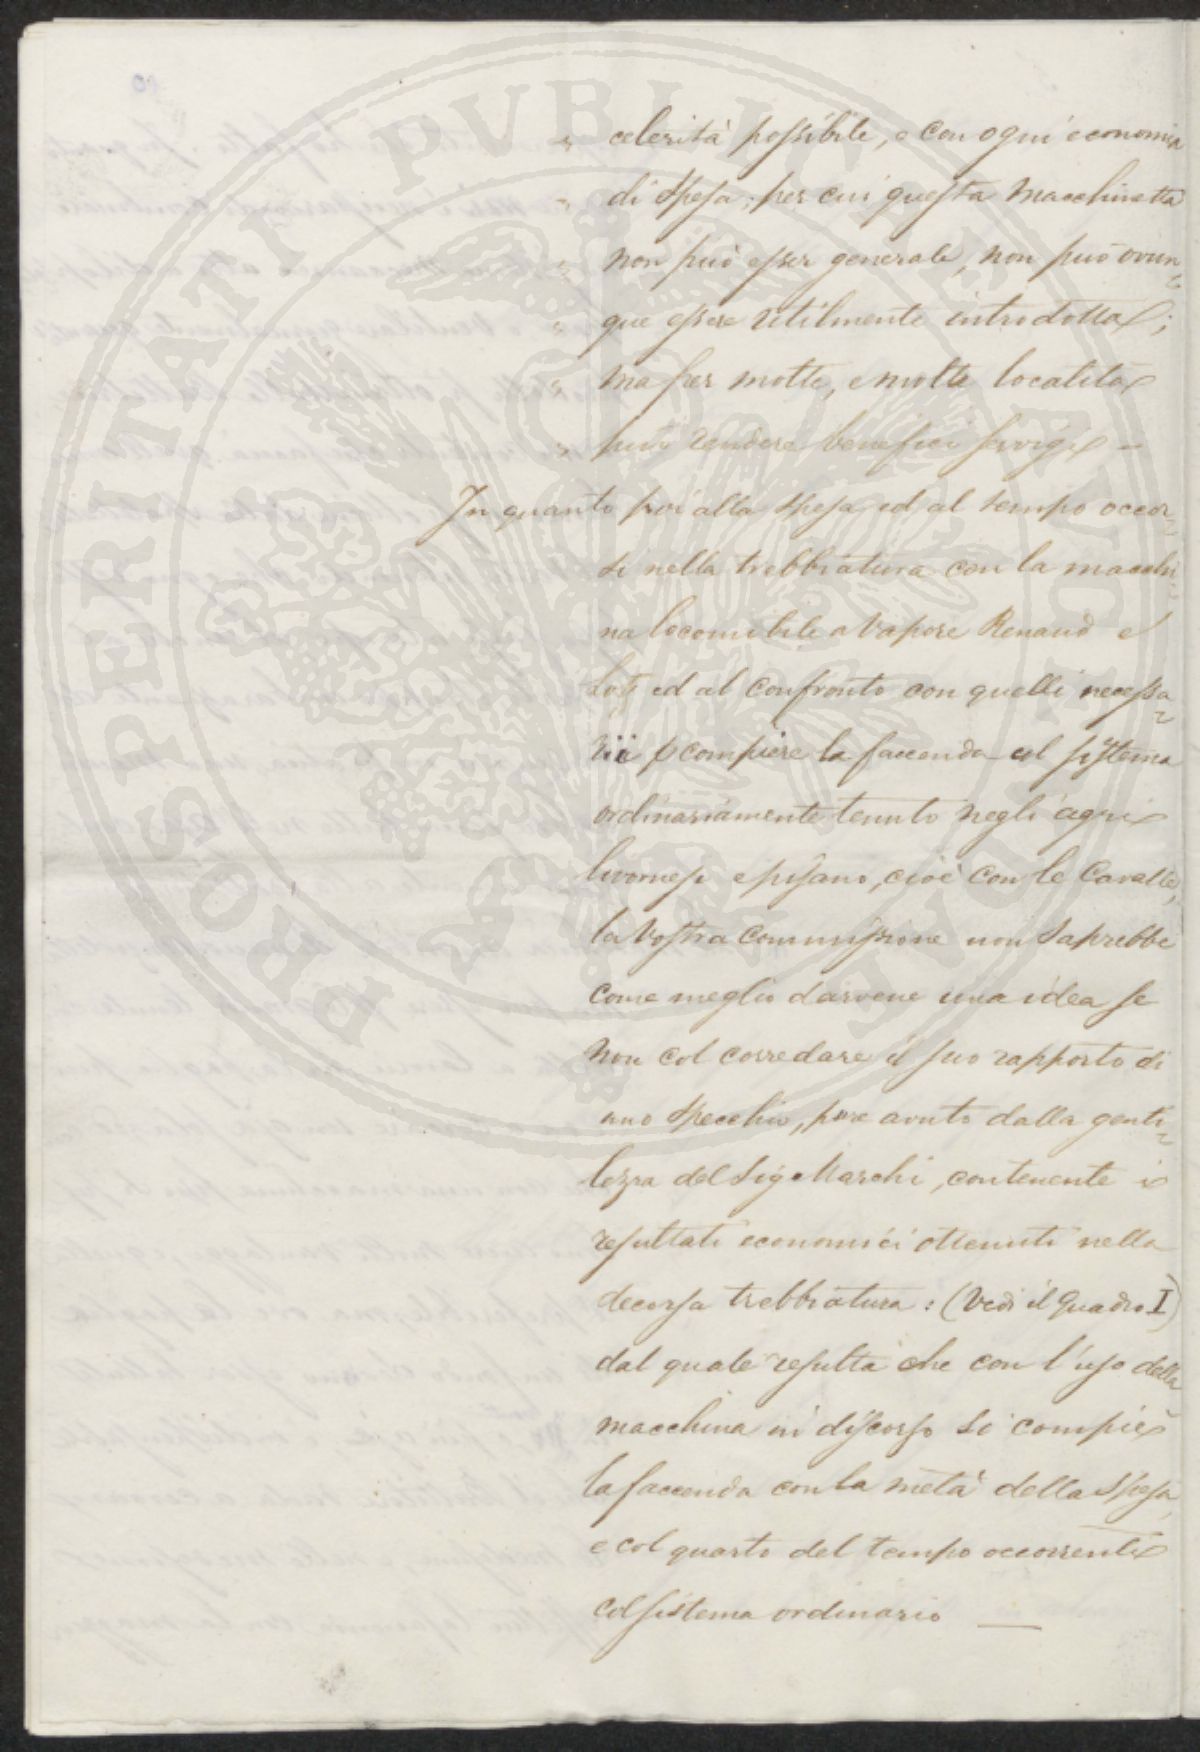 PROSPERITATI PVBLICAE AVGENDAE
" celerità possibile, e con ogni economia
" di spesa; per cui questa macchinetta
" non può esser generale, non può ovun=
" que essere utilmente introdotta;
" ma per molte, e molte località
" può rendere benefici servigi =
In quanto poi alla spesa ed al tempo occor=
si nella trebbiatura con la macchi=
na locomibile a vapore Renaud e
Lotz ed al confronto con quelli necessa=
rii p compiere la faccenda col sistema
ordinariamente tenuto negli agri
livornese e pisano, cioè con le Cavalle,
la Vostra Commissione non saprebbe
come meglio darvene una idea se
non col corredare il suo rapporto di
uno specchio, pure avuto dalla genti=
lezza del Sig. Marchi, contenente i
resultati economici ottenuti nella
decorsa trebbiatura: (Vedi il quadro I)
dal quale resulta che con l'uso della
macchina in discorso si compie
la faccenda con la metà della spesa,
e col quarto del tempo occorrente
col sistema ordinario —